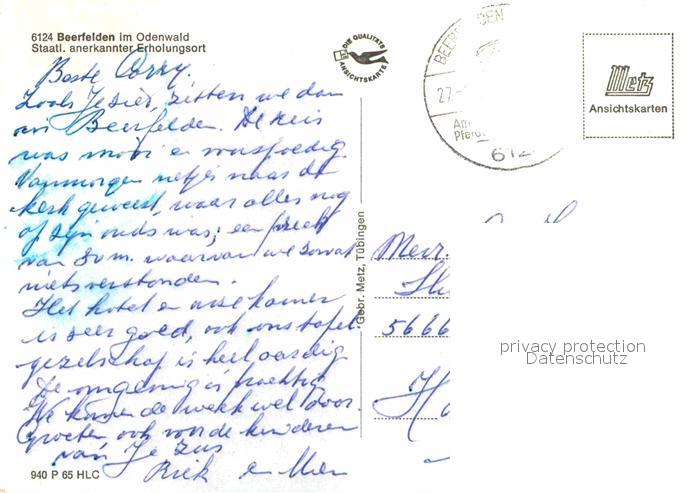 6124 Beerfelden im Odenwald
Staatl. anerkannter Erholungsort
DIE QUALITÄTS
ANSICHTSKARTE
BEER DEN
27.
Pferd
612
Metz
Ansichtskarten
Beste Corry.
Zoals Je ziet, zitten we dan
in Beerfelden. De reis
was mooi en voorspoedig.
Vanmorgen netjes naar de
kerk geweest, waar alles nog
op zijn ouds was; een preek
van 30 m. waarvan we zowat
niets verstonden.
Het hotel en onze kamer
is zeer goed, ook ons tafel
gezelschap is heel aardig.
De omgeving is prachtig.
We komen de week wel door.
groeten, ook voor de kinderen
van Je Zus
Riek en
Gebr. Metz, Tübingen
Mevr.
5666
940 P 65 HLC
privacy protection
Datenschutz